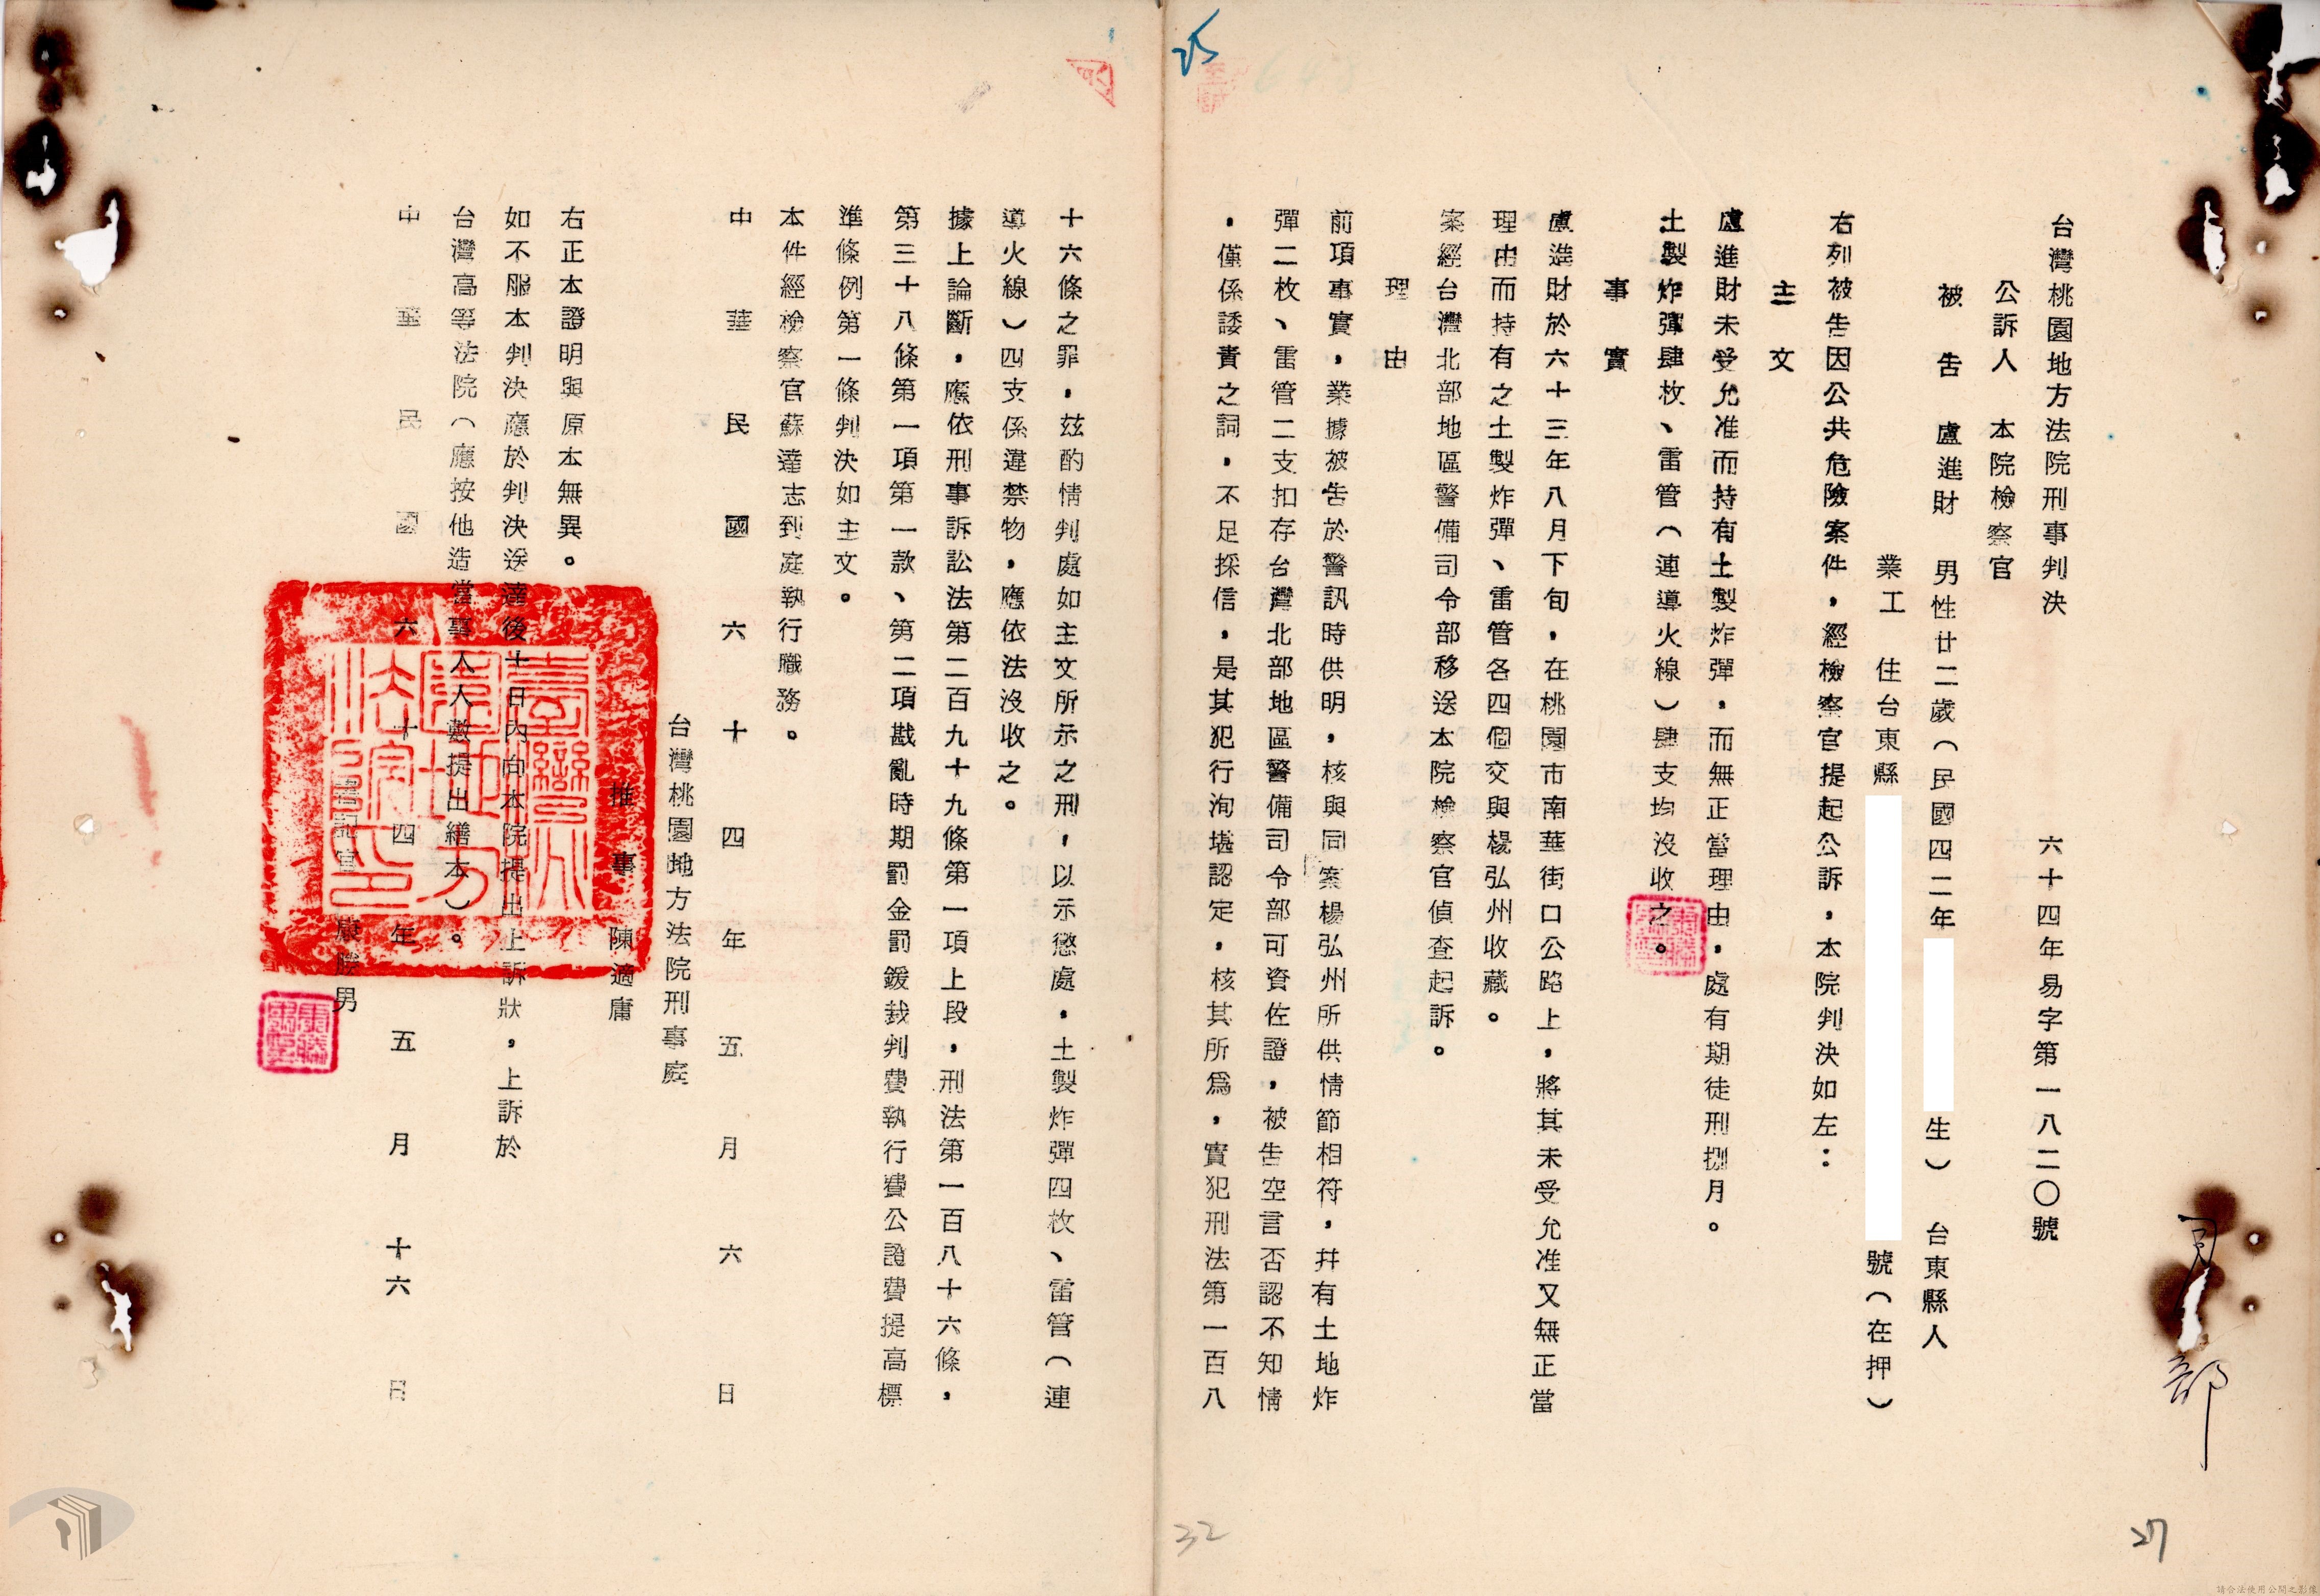 台灣桃園地方法院刑事判決
六十四年易字第一八二〇號
公訴人　本院檢察官
被告　盧進財　男性廿二歲（民國四二年
生）　台東縣人
業工　住台東縣
號（在押）
右列被告因公共危險案件，經檢察官提起公訴，本院判決如左：
主文
盧進財未受允准而持有土製炸彈，而無正當理由，處有期徒刑捌月。
土製炸彈肆枚、雷管（連導火線）肆支均沒收之。
事實
盧進財於六十三年八月下旬，在桃園市南華街口公路上，將其未受允准又無正當
理由而持有之土製炸彈、雷管各四個交與楊弘州收藏。
案經台灣北部地區警備司令部移送本院檢察官偵查起訴。
理由
前項事實，業據被告於警訊時供明，核與同案楊弘州所供情節相符，幷有土地炸
彈二枚、雷管二支扣存台灣北部地區警備司令部可資佐證，被告空言否認不知情
，僅係諉責之詞，不足採信，是其犯行洵堪認定，核其所爲，實犯刑法第一百八
十六條之罪，玆酌情判處如主文所示之刑，以示懲處。土製炸彈四枚、雷管（連
導火線）四支係違禁物，應依法沒收之。
據上論斷，應依刑事訴訟法第二百九十九條第一項上段，刑法第一百八十六條，
第三十八條第一項第一款、第二項戡亂時期罰金罰鍰裁判費執行費公證費提高標
準條例第一條判決如主文。
本件經檢察官蘇達志到庭執行職務。
中華民國六十四年五月六日
台灣桃園地方法院刑事庭
推事　陳適庸
右正本證明與原本無異。
如不服本判決應於判決送達後十日內向本院提出上訴狀，上訴於
台灣高等法院（應按他造當事人人數提出繕本）。
中華民國六十四年五月十六日
書記官　康勝男
臺灣桃園地方法院印
25
32
27
請合法使用公開之影像